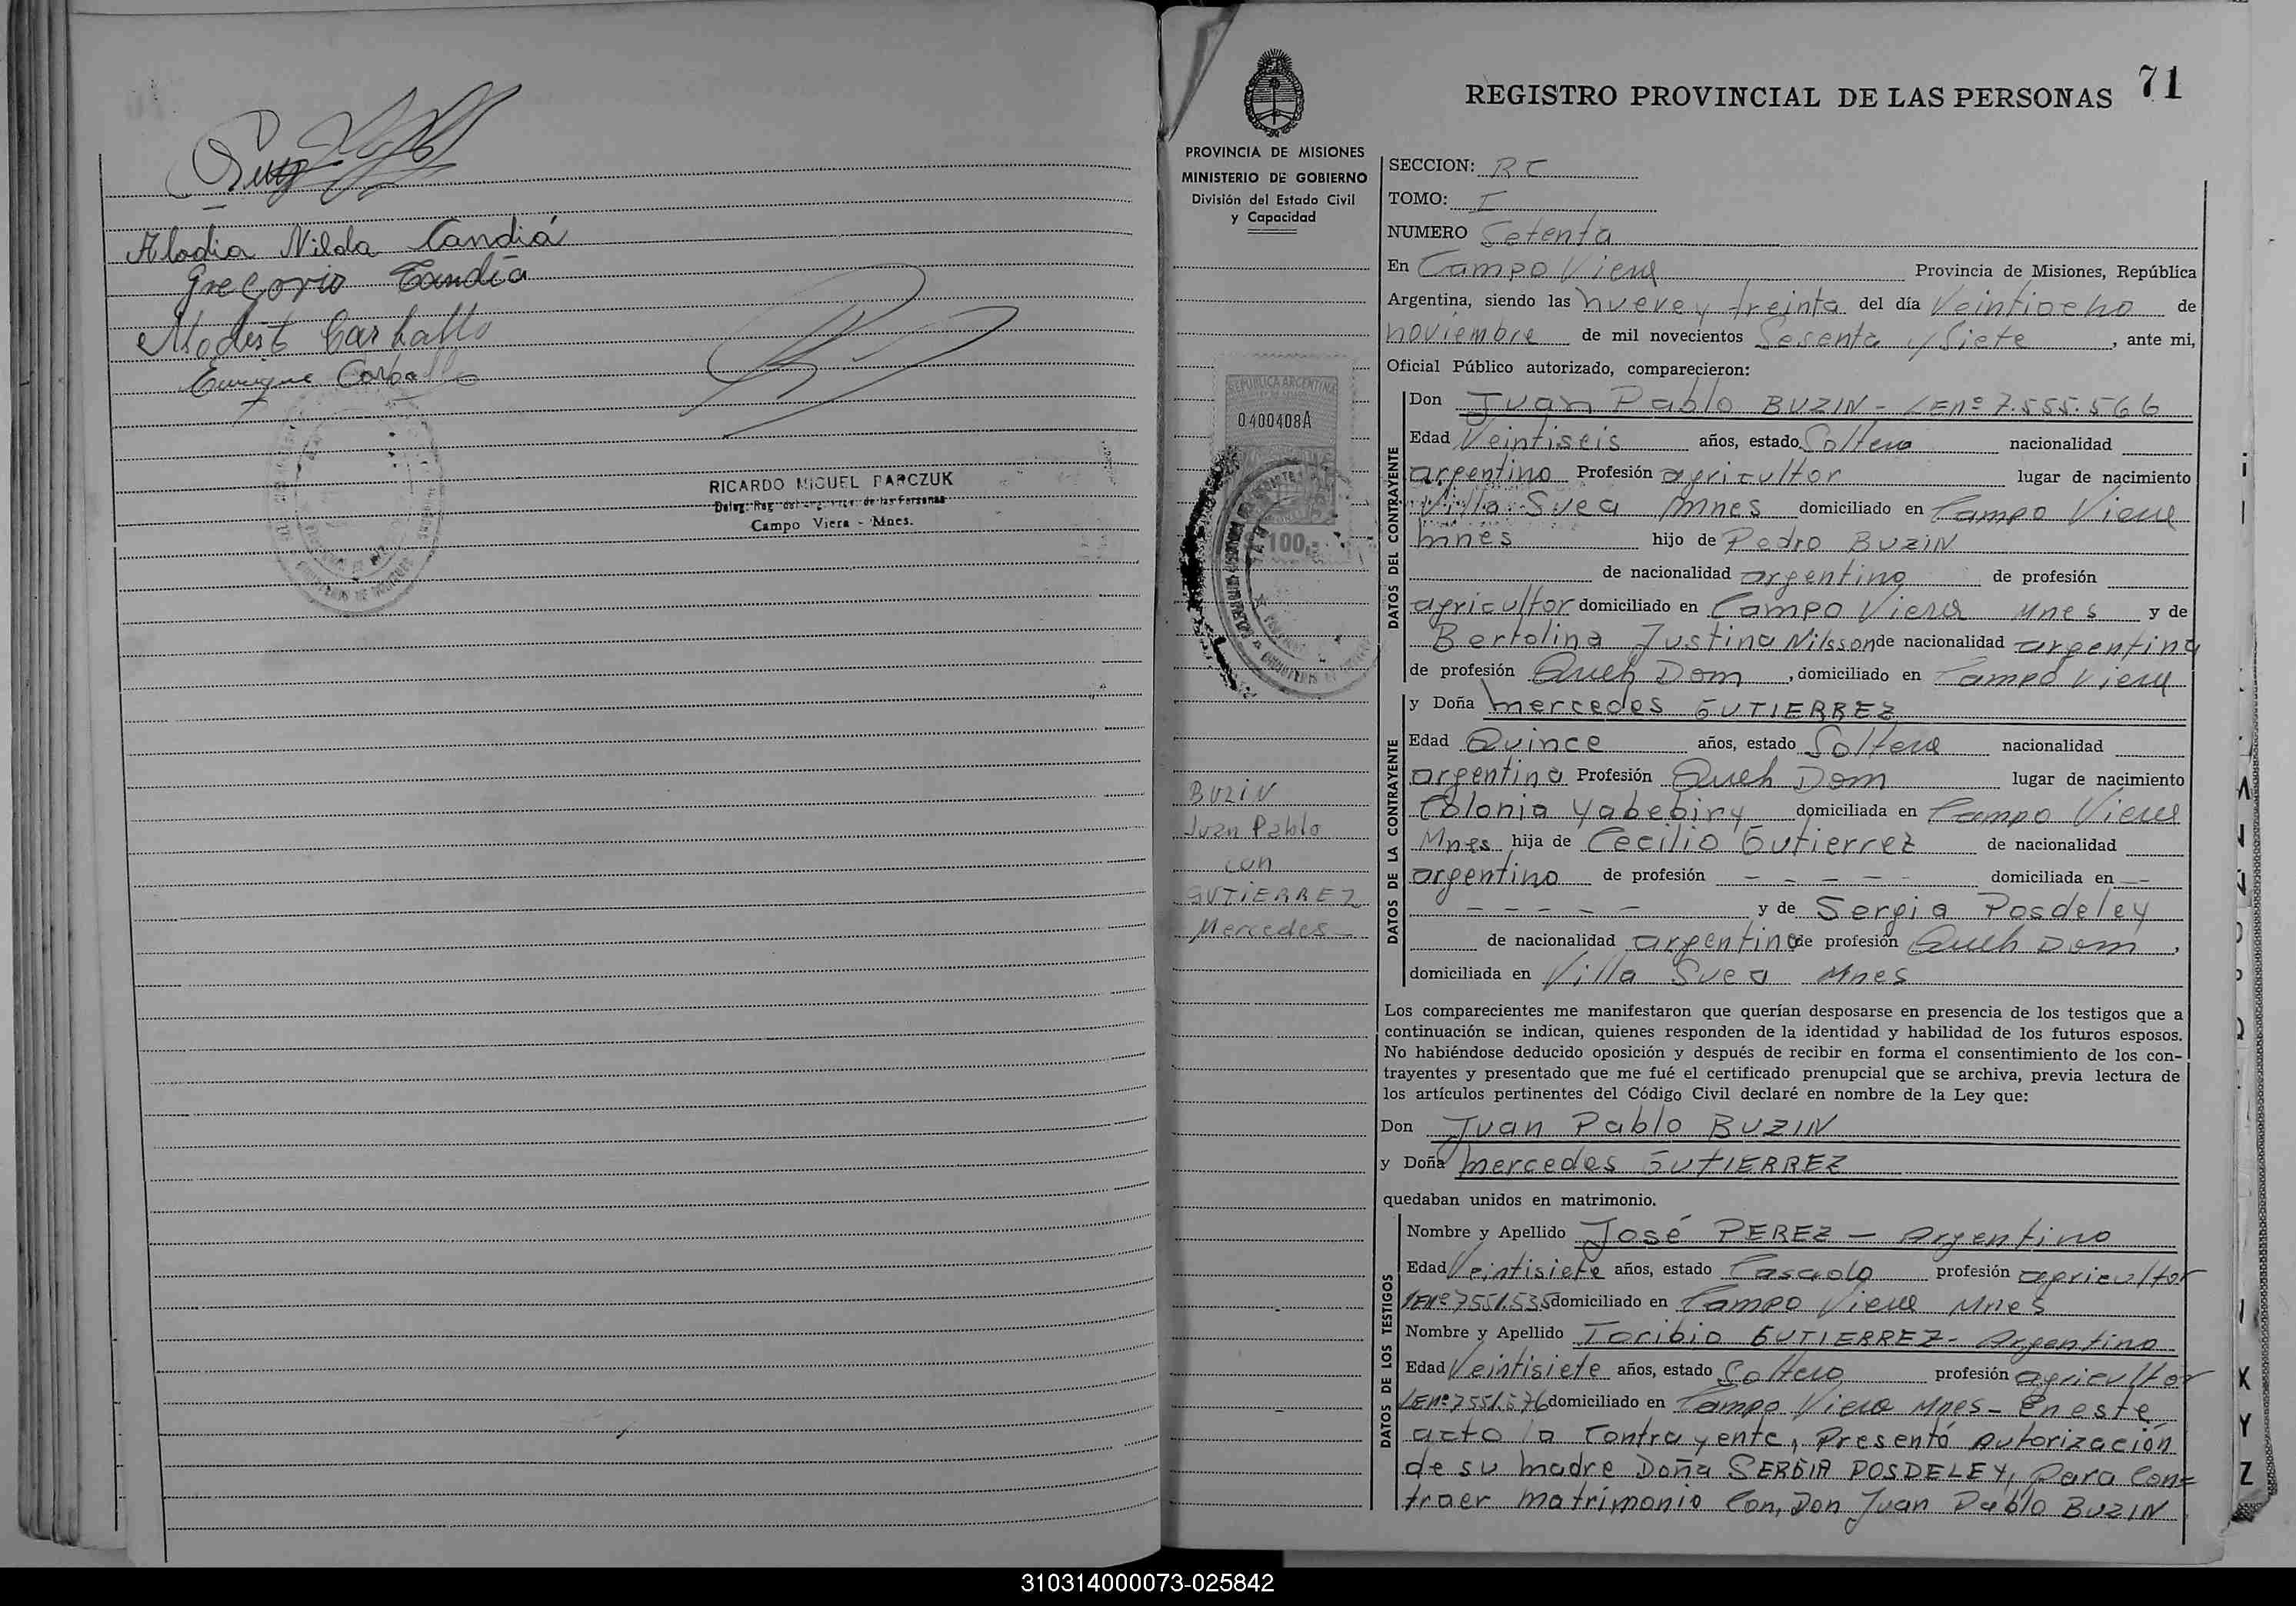 Alodia Nilda Candiá
Gregorio Candia
Modest Carballo
Enrique Carballo
RICARDO MIGUEL PARCZUK
Campo Viera - Mnes.
71
REGISTRO PROVINCIAL DE LAS PERSONAS
PROVINCIA DE MISIONES
MINISTERIO DE GOBIERNO
División del Estado Civil
y Capacidad
REPUBLICA ARGENTINA
0400408A
100
BUZIN
Juan Pablo
con
GUTIERREZ
Mercedes -
SECCION: RC
TOMO: I
NUMERO Setenta
En Campo Viera Provincia de Misiones, República
Argentina, siendo las nueve y treinta del día Veintiocho de
noviembre de mil novecientos Sesenta y Siete, ante mi,
Oficial Público autorizado, comparecieron:
DATOS DEL CONTRAYENTE
Don Juan Pablo BUZIN - LEnº 7.555.566
Edad Veintiseis años, estado Soltero nacionalidad
argentino Profesión agricultor lugar de nacimiento
Villa Svea Mnes domiciliado en Campo Viera
Mnes hijo de Pedro BUZIN
de nacionalidad argentino de profesión
agricultor domiciliado en Campo Viera Mnes y de
Bertolina Justina Nilsson de nacionalidad argentina
de profesión Queh Dom, domiciliado en Campo Viera
DATOS DE LA CONTRAYENTE
y Doña Mercedes GUTIERREZ
Edad Quince años, estado Soltera nacionalidad
argentina Profesión Queh Dom lugar de nacimiento
Colonia Yabebiry domiciliada en Campo Viera
Mnes hija de Cecilio Gutierrez de nacionalidad
argentino de profesión - - - - - domiciliada en - -
- - - - - y de Sergia Posdeley
de nacionalidad argentina de profesión Queh Dom,
domiciliada en Villa Svea Mnes
Los comparecientes me manifestaron que querían desposarse en presencia de los testigos que a
continuación se indican, quienes responden de la identidad y habilidad de los futuros esposos.
No habiéndose deducido oposición y después de recibir en forma el consentimiento de los con-
trayentes y presentado que me fué el certificado prenupcial que se archiva, previa lectura de
los artículos pertinentes del Código Civil declaré en nombre de la Ley que:
Don Juan Pablo BUZIN
y Doña Mercedes GUTIERREZ
quedaban unidos en matrimonio.
DATOS DE LOS TESTIGOS
Nombre y Apellido José PEREZ - Argentino
Edad Veintisiete años, estado Casado profesión agricultor
LEnº 7551.535 domiciliado en Campo Viera Mnes
Nombre y Apellido Toribio GUTIERREZ - Argentino
Edad Veintisiete años, estado Soltero profesión agricultor
LEnº 7551.576 domiciliado en Campo Viera Mnes - En este
acto la Contrayente, Presentó Autorización
de su Madre Doña SERGIA POSDELEY, Para Con=
traer matrimonio Con, Don Juan Pablo BUZIN
310314000073-025842